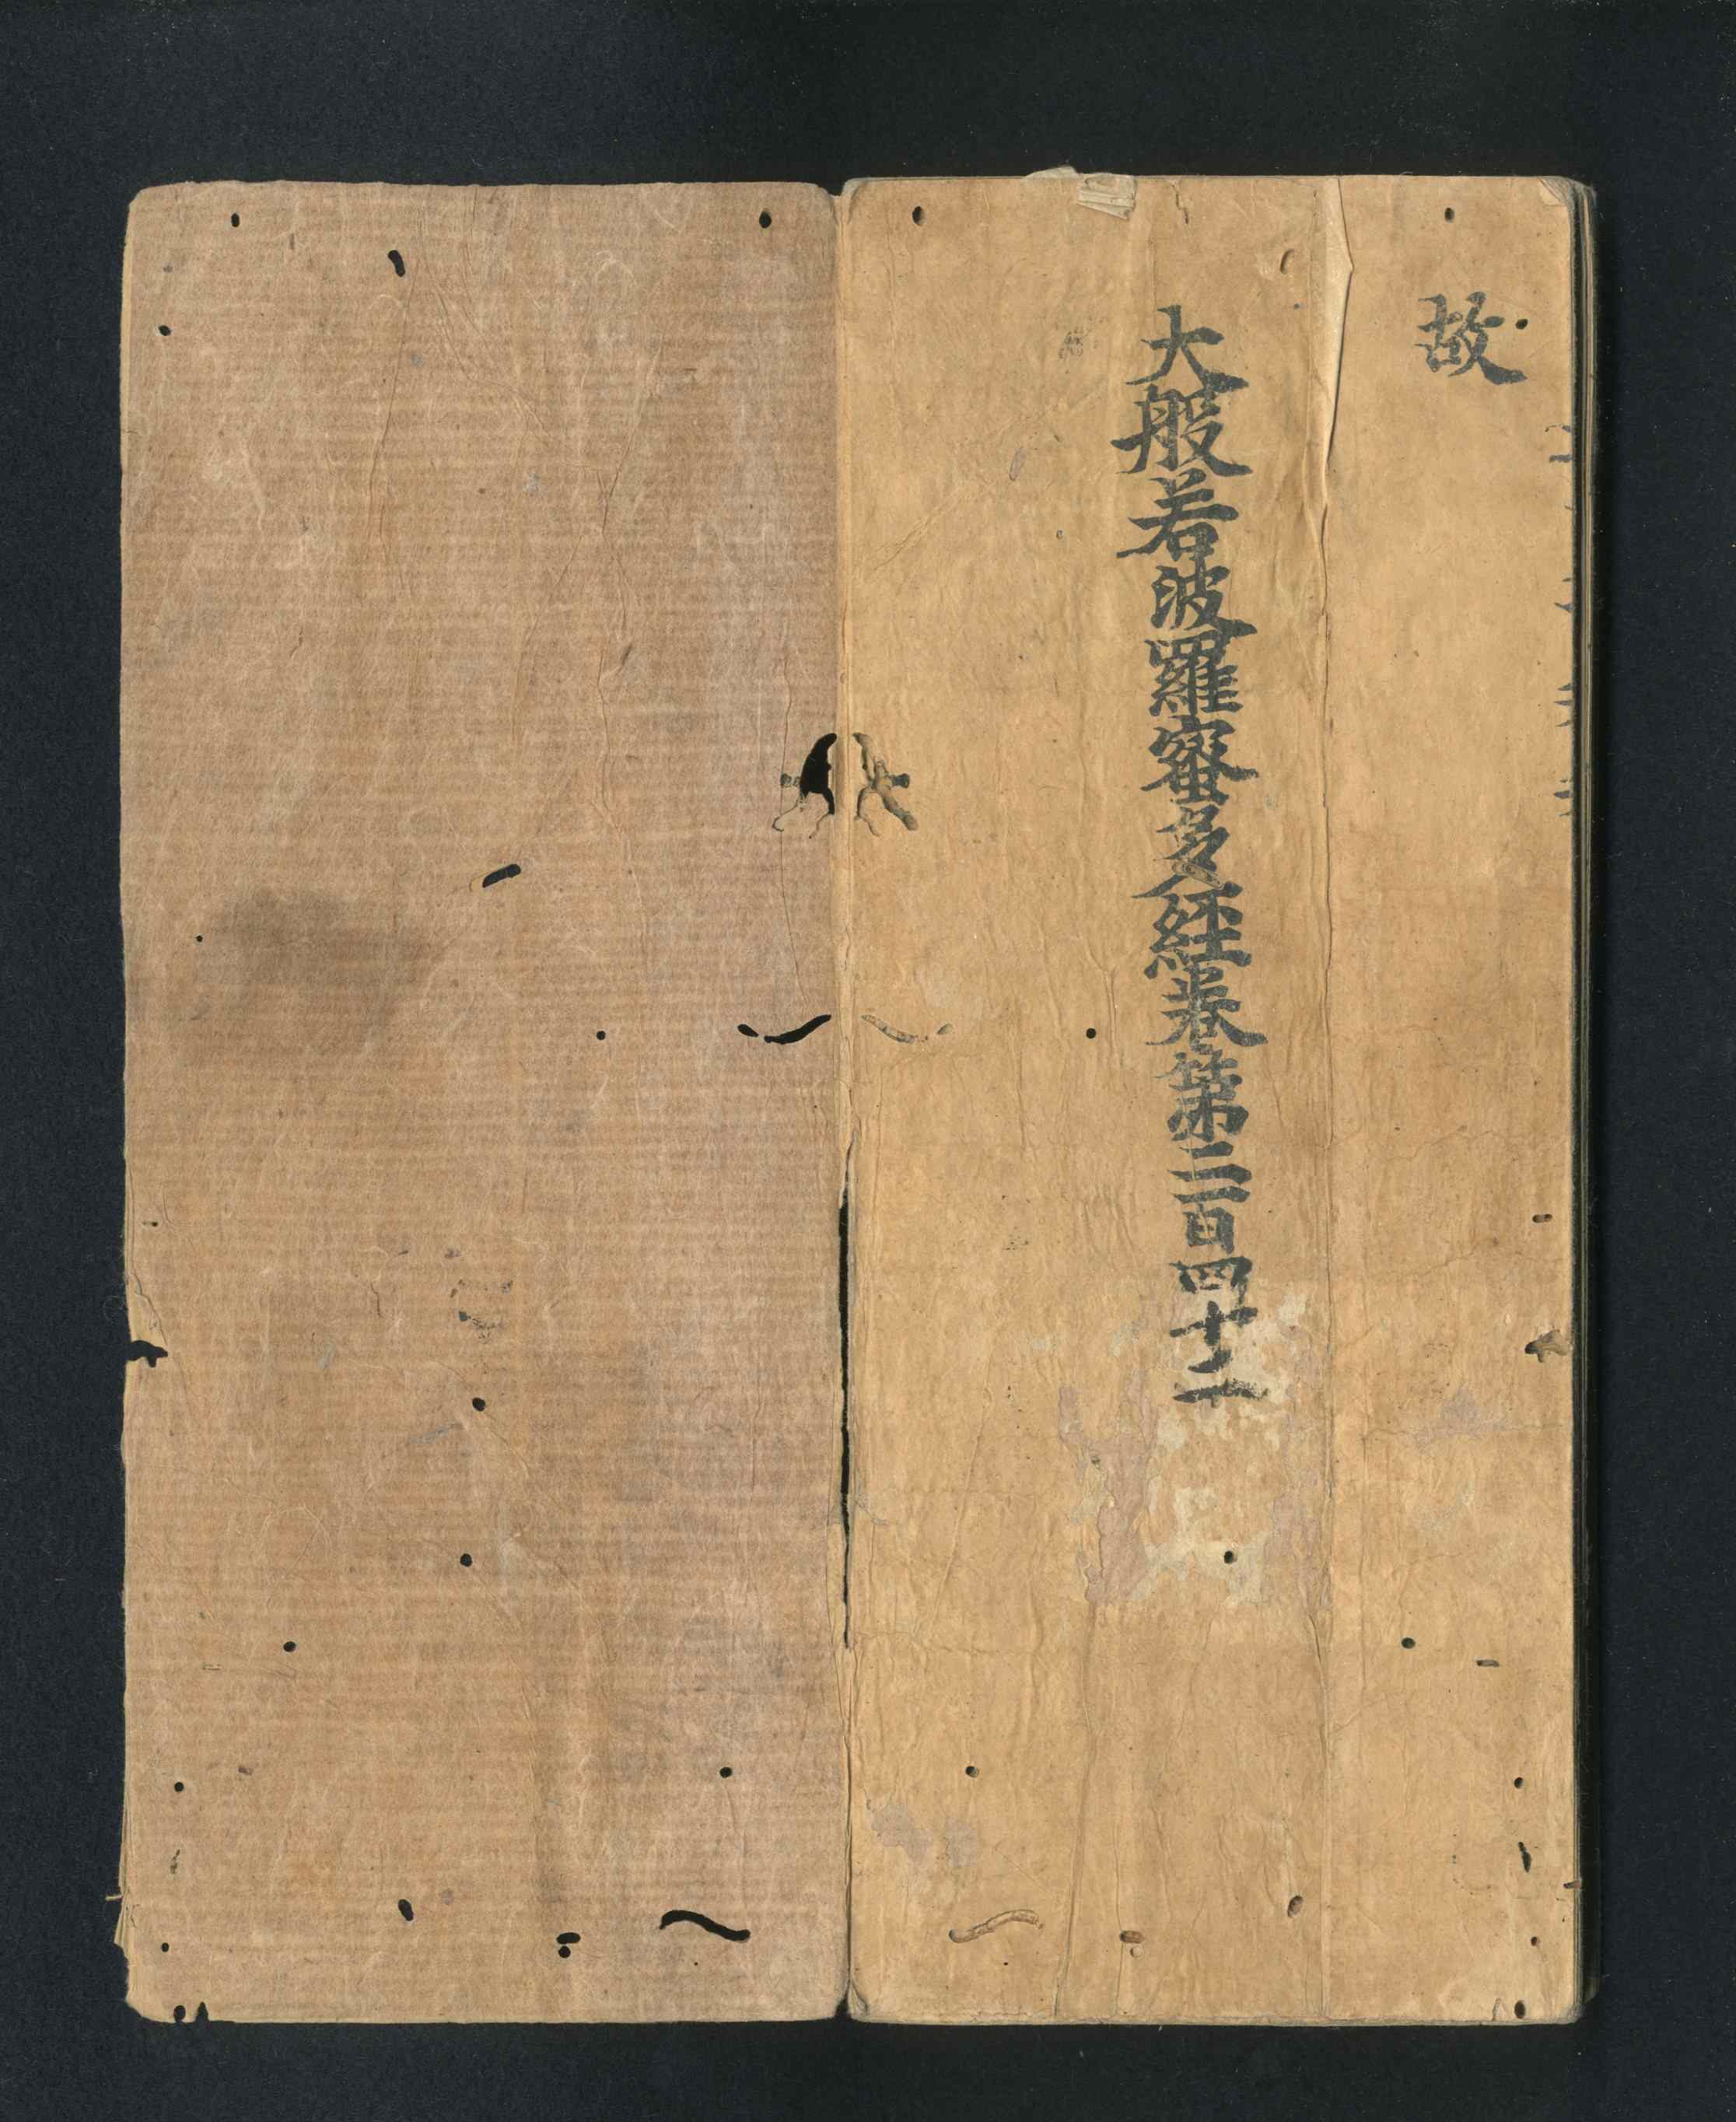 故
大般若波羅蜜多経巻第二百四十二